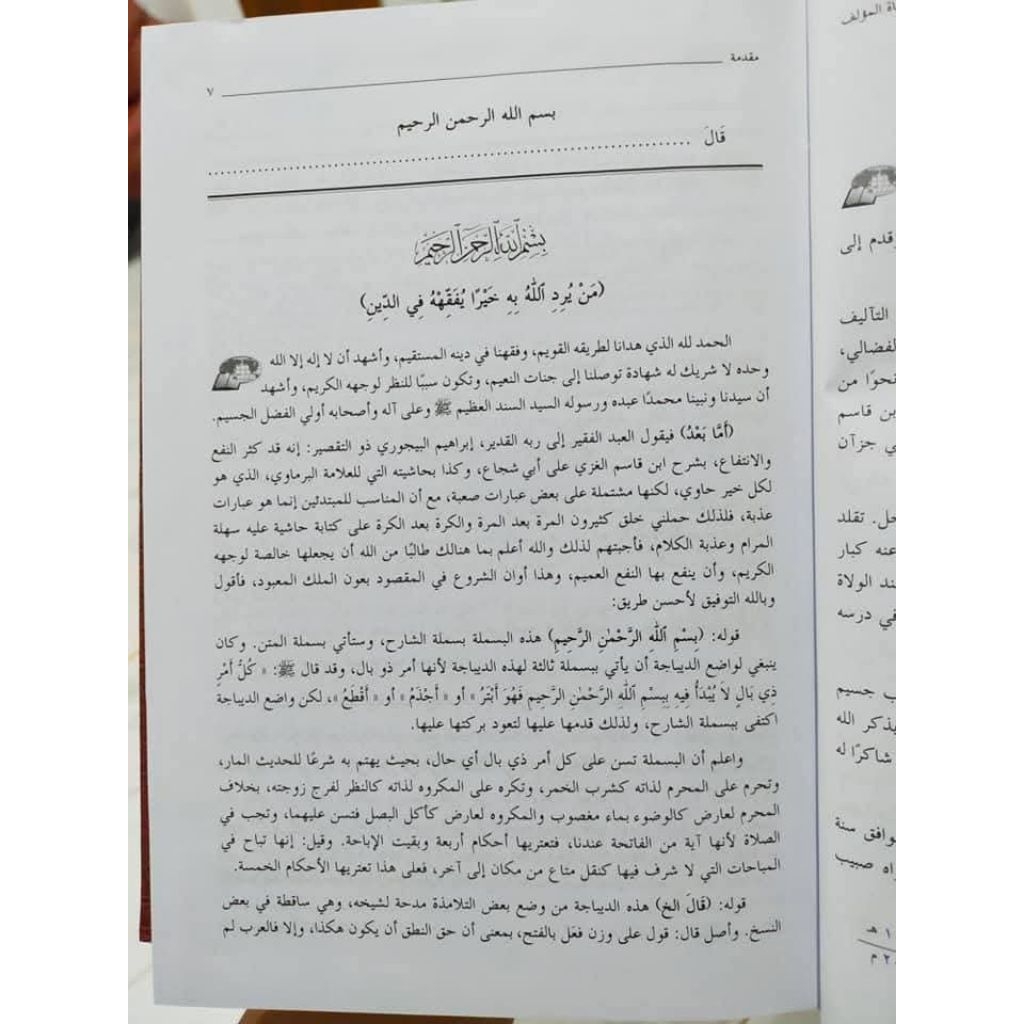 مقدمة ٧
بسم الله الرحمن الرحيم
قَالَ ........................................................................
بِسْمِ ٱللَّهِ ٱلرَّحْمَٰنِ ٱلرَّحِيمِ
(مَنْ يُرِدِ ٱللهُ بِهِ خَيْرًا يُفَقِّهْهُ فِي الدِّينِ)
الحمد لله الذي هدانا لطريقه القويم، وفقهنا في دينه المستقيم، وأشهد أن لا إله إلا الله
وحده لا شريك له شهادة توصلنا إلى جنات النعيم، وتكون سببًا للنظر لوجهه الكريم، وأشهد
أن سيدنا ونبينا محمدًا عبده ورسوله السيد السند العظيم ﷺ وعلى آله وأصحابه أولي الفضل الجسيم.
(أَمَّا بَعْدُ) فيقول العبد الفقير إلى ربه القدير، إبراهيم البيجوري ذو التقصير: إنه قد كثر النفع
والانتفاع، بشرح ابن قاسم الغزي على أبي شجاع، وكذا بحاشيته التي للعلامة البرماوي، الذي هو
لكل خير حاوي، لكنها مشتملة على بعض عبارات صعبة، مع أن المناسب للمبتدئين إنما هو عبارات
عذبة، فلذلك حملني خلق كثيرون المرة بعد المرة والكرة بعد الكرة على كتابة حاشية عليه سهلة
المرام وعذبة الكلام، فأجبتهم لذلك والله أعلم بما هنالك طالبًا من الله أن يجعلها خالصة لوجهه
الكريم، وأن ينفع بها النفع العميم، وهذا أوان الشروع في المقصود بعون الملك المعبود، فأقول
وبالله التوفيق لأحسن طريق:
قوله: (بِسْمِ ٱللهِ الرَّحْمٰنِ الرَّحِيمِ) هذه البسملة بسملة الشارح، وستأتي بسملة المتن. وكان
ينبغي لواضع الديباجة أن يأتي ببسملة ثالثة لهذه الديباجة لأنها أمر ذو بال، وقد قال ﷺ: « كُلُّ أَمْرٍ
ذِي بَالٍ لاَ يُبْدَأُ فِيهِ بِبِسْمِ ٱللهِ الرَّحْمٰنِ الرَّحِيمِ فَهُوَ أَبْتَرُ » أو « أَجْذَمُ » أو « أَقْطَعُ »، لكن واضع الديباجة
اكتفى ببسملة الشارح، ولذلك قدمها عليها لتعود بركتها عليها.
واعلم أن البسملة تسن على كل أمر ذي بال أي حال، بحيث يهتم به شرعًا للحديث المار،
وتحرم على المحرم لذاته كشرب الخمر، وتكره على المكروه لذاته كالنظر لفرج زوجته، بخلاف
المحرم لعارض كالوضوء بماء مغصوب والمكروه لعارض كأكل البصل فتسن عليهما، وتجب في
الصلاة لأنها آية من الفاتحة عندنا، فتعتريها أحكام أربعة وبقيت الإباحة. وقيل: إنها تباح في
المباحات التي لا شرف فيها كنقل متاع من مكان إلى آخر، فعلى هذا تعتريها الأحكام الخمسة.
قوله: (قَالَ الخ) هذه الديباجة من وضع بعض التلامذة مدحة لشيخه، وهي ساقطة في بعض
النسخ. وأصل قال: قول على وزن فعَل بالفتح، بمعنى أن حق النطق أن يكون هكذا، وإلا فالعرب لم
المؤلف
قدم إلى
التآليف
لفضالي،
نحوًا من
بن قاسم
ي جزآن
حل. تقلد
عنه كبار
ند الولاة
في درسه
ب جسيم
يذكر الله
شاكرًا له
وافق سنة
اه صبيب